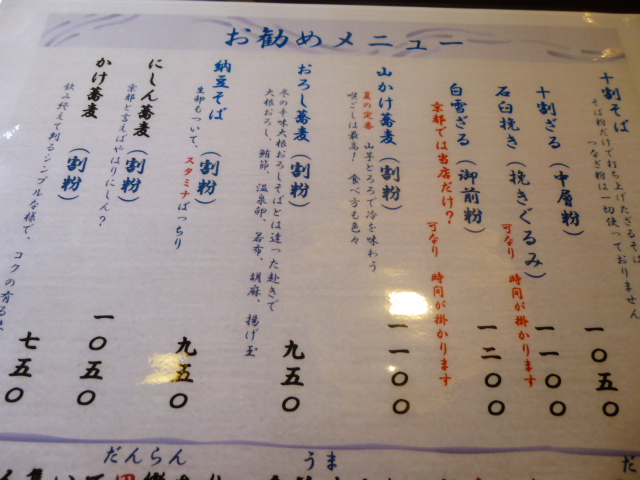 お勧めメニュー
十割そば
そば粉だけで打ち上げたざるそば
つなぎ粉は一切使っておりません
一〇五〇
十割ざる（中層粉）
一一〇〇
石臼挽き（挽きぐるみ）
可なり 時間が掛かります
一二〇〇
白雪ざる（御前粉）
京都では当店だけ？
可なり 時間が掛かります
山かけ蕎麦（割粉）
夏の定番 山芋とろろで冷を味わう
喉ごしは最高！ 食べ方も色々
一一〇〇
おろし蕎麦（割粉）
冬の辛味大根おろしそばとは違った赴きで
大根おろし、鰹節、温泉卵、若布、胡麻、揚げ玉
九五〇
納豆そば（割粉）
生卵もついて、スタミナばっちり
九五〇
にしん蕎麦（割粉）
京都と言えばやはりにしん？
一〇五〇
かけ蕎麦（割粉）
飲み終えて判るシンプルな様で、コクの有る
七五〇
だんらん
うま
だ